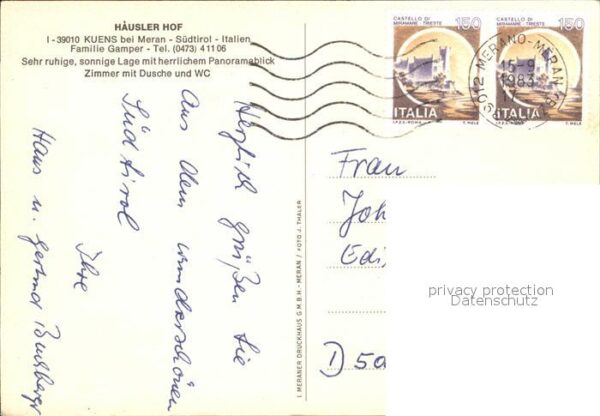 HÄUSLER HOF
I - 39010 KUENS bei Meran - Südtirol - Italien
Familie Gamper - Tel. (0473) 41106
Sehr ruhige, sonnige Lage mit herrlichem Panoramablick
Zimmer mit Dusche und WC
CASTELLO DI
MIRAMARE - TRIESTE
150
ITALIA
I.P.Z.S.-ROMA
T. MELE
CASTELLO DI
MIRAMARE - TRIESTE
150
ITALIA
I.P.Z.S.-ROMA
T. MELE
39012 MERANO-MERAN
15-9
1983
Herzlich grüßen Sie
aus dem wunderschönen
Südtirol
Ihre
Hans u. Gertrud
I. MERANER DRUCKHAUS G.M.B.H. - MERAN / FOTO J. THALER
Frau
Joh
Edi
D 50
privacy protection
Datenschutz